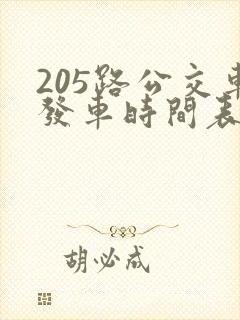 205路公交車
發車時間表
胡必成